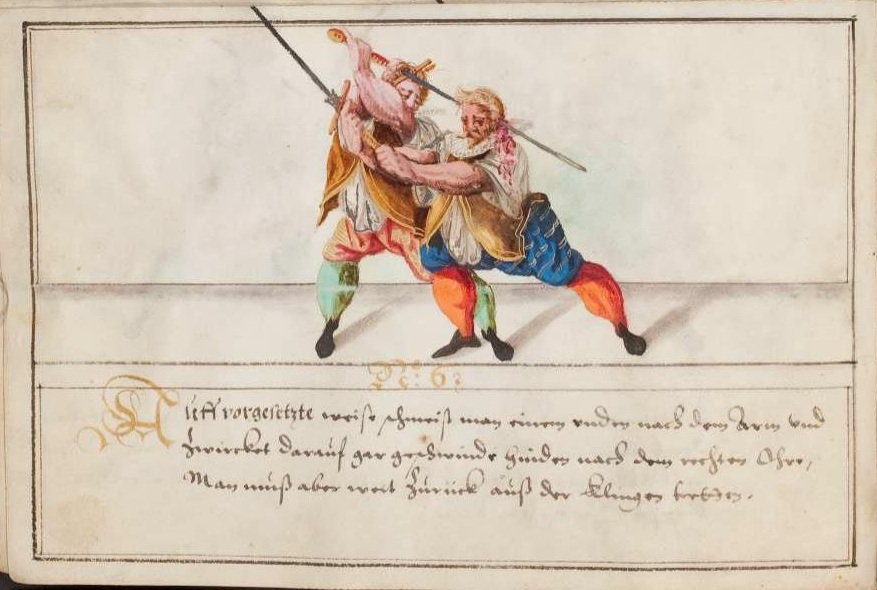 No: 62
Auff vorgesetzte weise schmeist man einem unden nach dem Arm und
Zwircket darauf gar geschwinde hinden nach dem rechten Ohre,
Man muß aber weit Zurück auß der Klingen tretten.